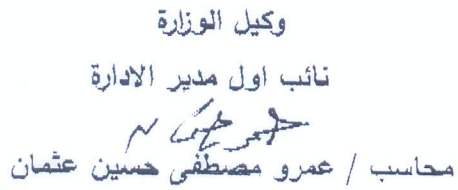 وكيل الوزارة
نائب اول مدير الادارة
محاسب / عمرو مصطفى حسين عثمان